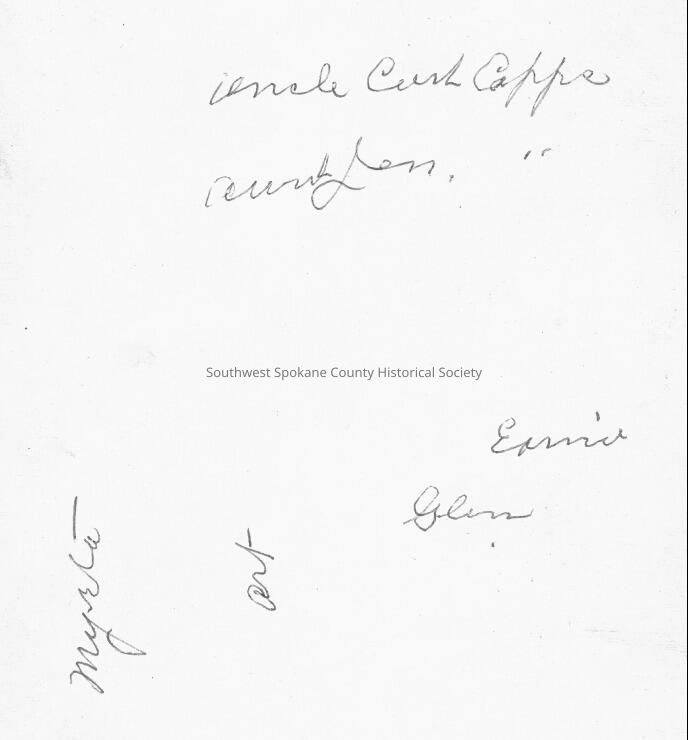 uncle Curt Capps
aunt Jen. "
Southwest Spokane County Historical Society
Ernie
Glen
art
Myrta